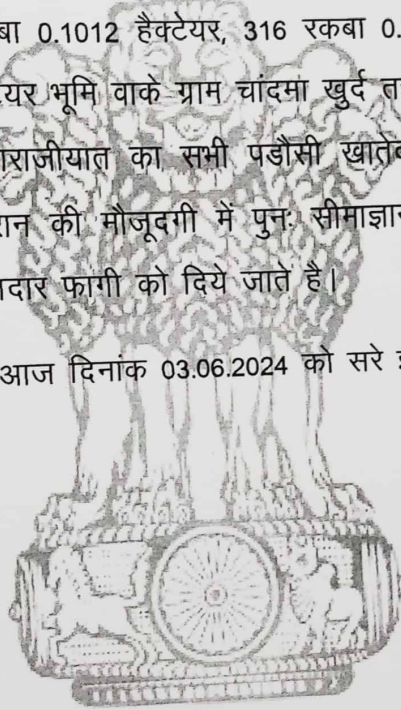 बा 0.1012 हैक्टेयर, 316 रकबा 0.
यर भूमि वाके ग्राम चांदमा खुर्द त
राजीयात का सभी पडौसी खातेद
ान की मौजूदगी में पुनः सीमाज्ञान
दार फागी को दिये जाते है।
आज दिनांक 03.06.2024 को सरे इ